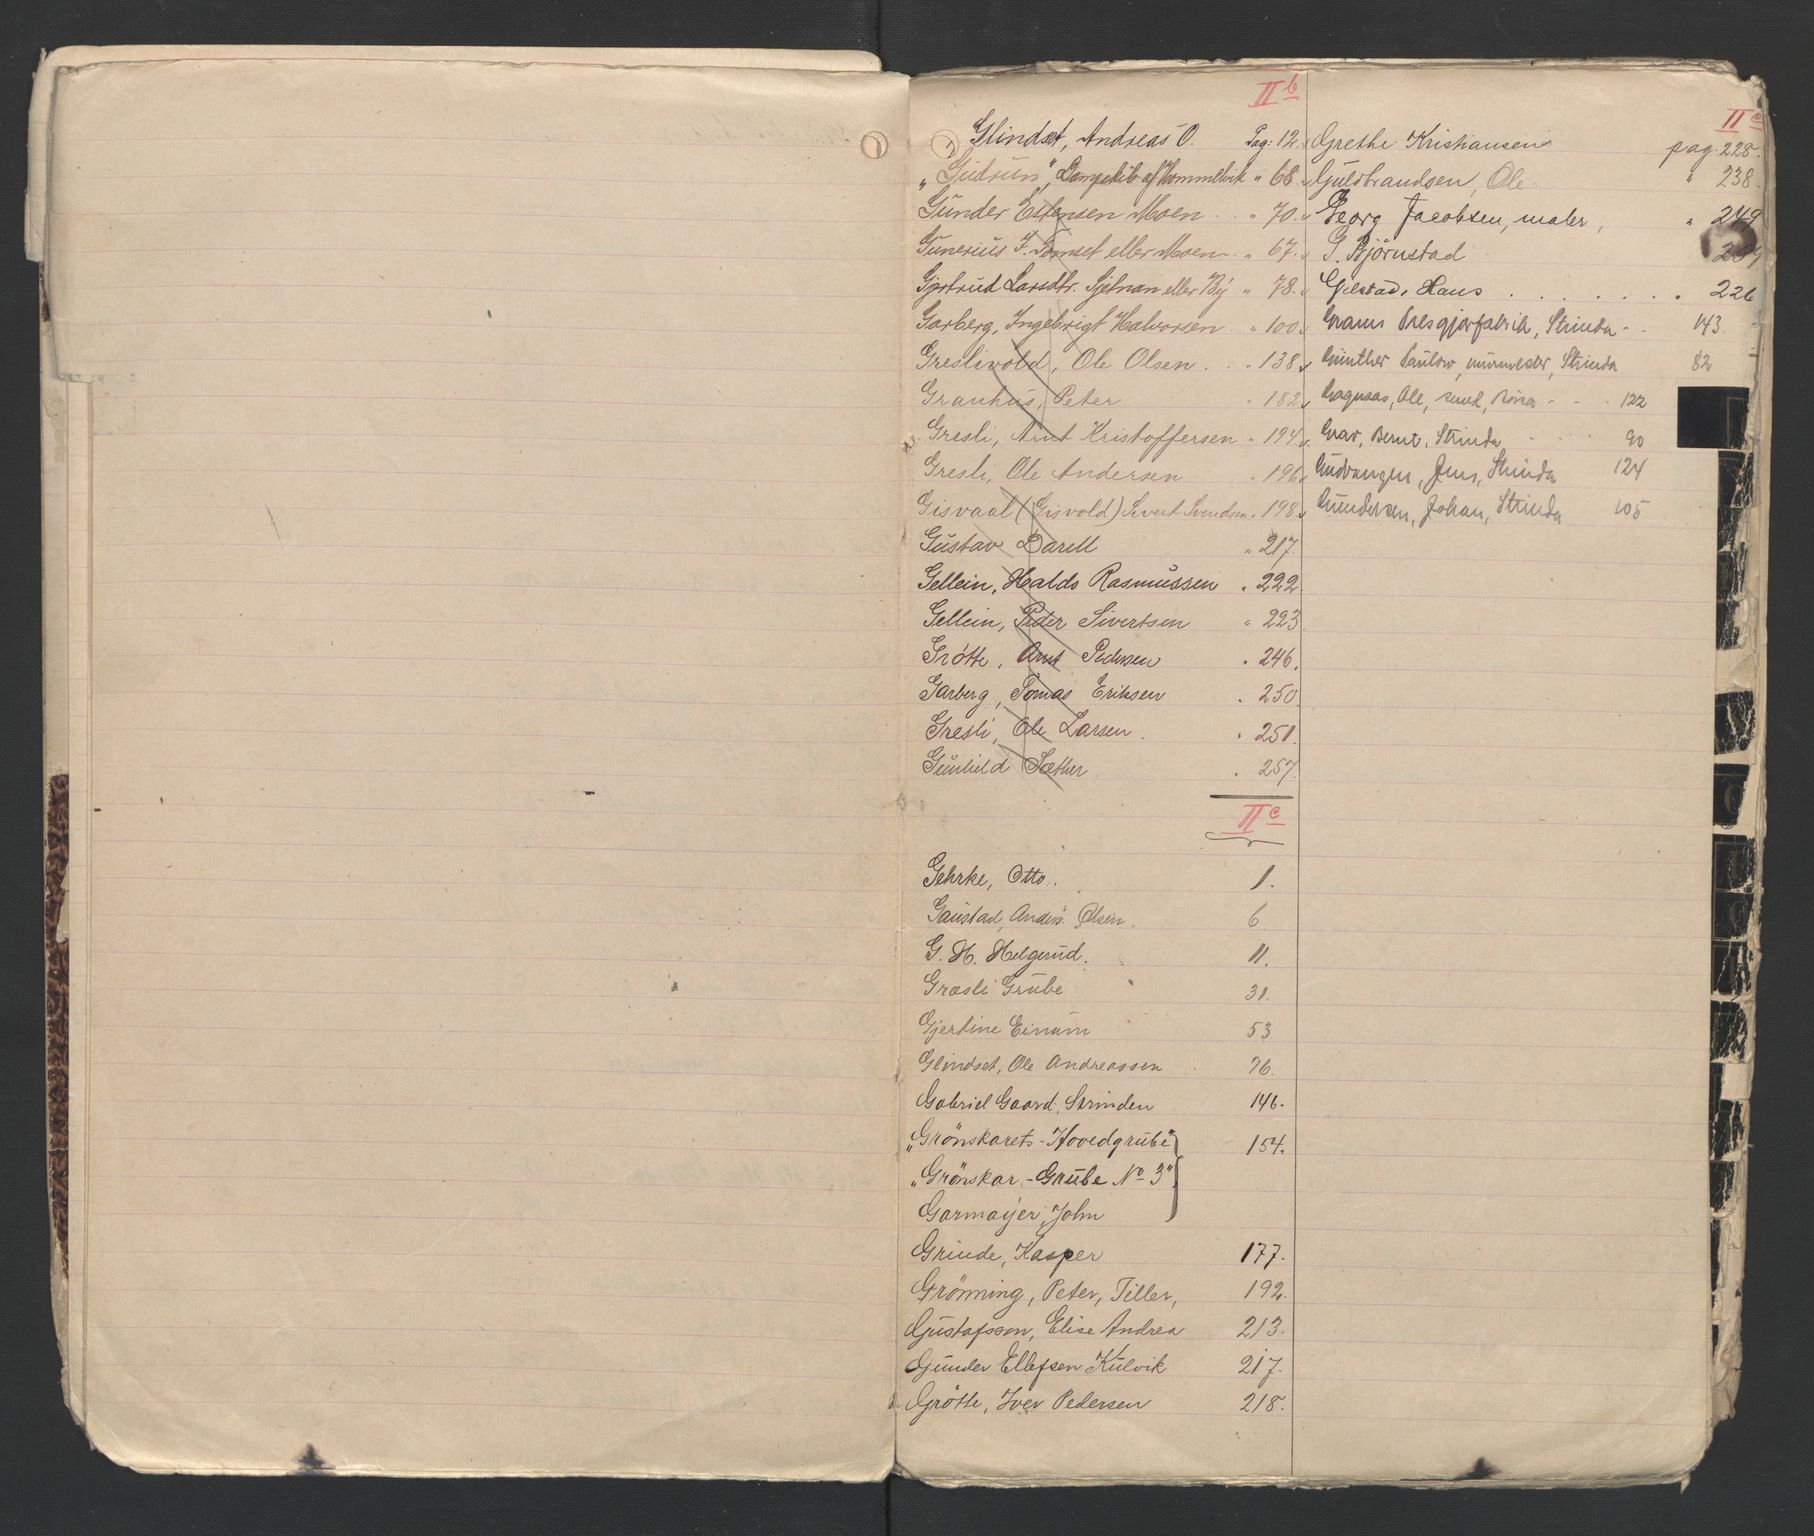 II b
Glindset, Andreas O. Pag: 12.
"Gudrun", Dampskib af Hommelvik " 68.
Gunder Estensen Moen . . " 70.
Gunerius J. Tomset eller Moen . " 67.
Gjertrud Larsdtr. Sjetnan eller By " 78.
Garberg, Ingebrigt Halvorsen . " 100.
Greslivold, Ole Olsen . . " 138.
Granhus, Peter " 182.
Gresli, Arnt Kristoffersen " 194.
Gresli, Ole Andersen " 196.
Gisvaal (Gisvold) Sivert Svendsen " 198.
Gustav Darell " 217.
Gellein, Haldo Rasmussen " 222.
Gellein, Peder Sivertsen " 223
Grötte, Arnt Pedersen " 246.
Garberg, Tomas Eriksen " 250.
Gresli, Ole Larsen . " 251.
Gunhild Sæther . " 257.
II c
Gehrke, Otto . 1.
Gaustad, Anders Olsen . 6
G. H. Helgerud. 11.
Græsli Grube 31.
Gjertine Einum 53
Glindset, Ole Andreassen . 76.
Gabriel Gaard, Strinden 146.
"Grönskarets-Hovedgrube" 154.
"Grönskar-Grube No 3"
Garmaijer, John
Grinde, Kasper 177.
Grönning, Peter, Tiller, 192.
Gustafsson, Elise Andrea 213.
Gunder Ellefsen Kulvik 217.
Grötte, Iver Pedersen 218.
II c
Grethe Kristiansen pag. 228.
Guldbrandsen, Ole " 238.
Georg Jacobsen, maler, " 249
G. Björnstad
Gjelstad, Hans . . . . . . " 226
Grams Presgjærfabrik, Strinda - . 143.
Günther Paulow, murmester, Strinda 82
Ole, smed, Röros - - . 122
Grav, Bernt, Strinda 90
Gudvangen, Jens, Strinda 124
Gundersen, Johan, Strinda 105